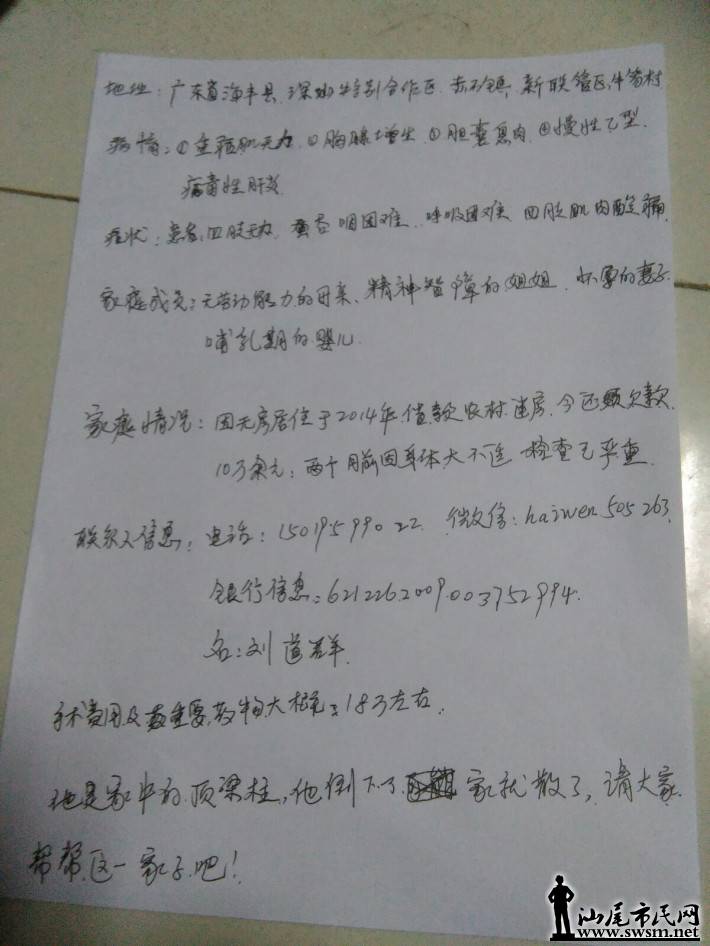 地址：广东省海丰县.深汕特别合作区.赤石镇.新联管区.牛筶村
病情：①重症肌无力.②胸腺增生.③胆囊息肉.④慢性乙型.
病毒性肝炎
症状：患者.四肢无力.吞咽困难..呼吸困难.四肢肌肉酸痛.
家庭成员：无劳动能力的母亲、精神智障的姐姐.怀孕的妻子
哺乳期的婴儿.
家庭情况：因无房居住于2014年借款农村建房.今还欠款
10万余元；两个月前因身体大不适 检查已严重.
联系人信息：电话：15019599022. 微信：haiwen505263.
银行信息：6212262009003752994.
名：刘道群.
手术费用及重要药物大概：18万左右.
他是家中的顶梁柱，他倒下了家就散了，请大家.
帮帮这一家子吧！
汕尾市民网
www.swsm.net